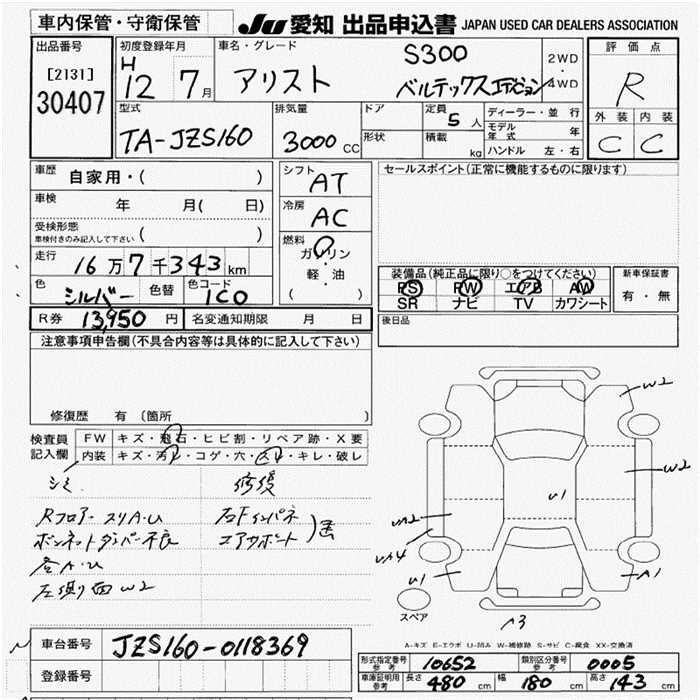 車内保管・守衛保管
JU 愛知 出品申込書 JAPAN USED CAR DEALERS ASSOCIATION
出品番号
[2131]
30407
初度登録年月
H 12 7月
車名・グレード
アリスト
S300
ベルテックスエディション
2WD
・
4WD
評価点
R
外装 内装
C C
型式
TA-JZS160
排気量
3000 CC
ドア
形状
定員
5 人
積載
kg
ディーラー・並行
モデル年式 年
ハンドル 左・右
車歴 自家用・( )
車検 年 月( 日)
受検形態
車検付きのみ記入して下さい ( )
走行 16万7千343 km
色 シルバー 色替 色コード 1C0
R券 13,950 円 名変通知期限 月 日
シフト
AT
冷房
AC
燃料
ガソリン
・
軽・油
( )
セールスポイント(正常に機能するものに限ります)
装備品(純正品に限り○をつけてください)
PS PW エアB AW
SR ナビ TV カワシート
新車保証書
有・無
後日品
注意事項申告欄(不具合内容等は具体的に記入して下さい)
修復歴 有 (箇所 )
検査員
記入欄
FW キズ・飛石・ヒビ割・リペア跡・X要
内装 キズ・汚れ・コゲ・穴・スレ・キレ・破レ
シミ 修復
Rフロアースリ A・U
ボンネットダンパー不良
A・U
左側面 W2
右Fインパネ
エアサポート
W2
W2
U1
UA2
UA4
U1
A1
A3
スペア
A-キズ E-エクボ U-凹み W-補修跡 S-サビ C-腐食 XX-交換済
車台番号 JZS160-0118369
登録番号
形式指定番号
参考
10652
類別区分番号
参考
0005
車庫証明用
参考
長さ 480 cm 幅 180 cm 高さ 143 cm